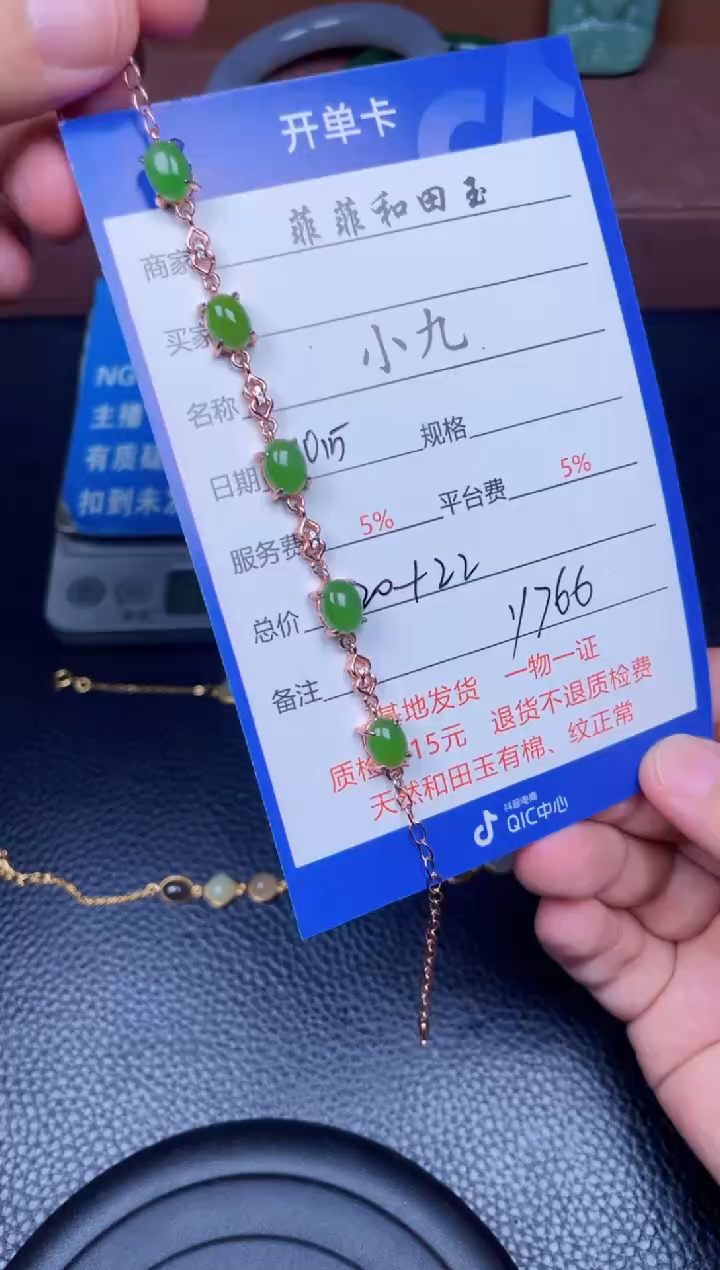 开单卡
商家 菲菲和田玉
买家
名称 小九
日期 015 规格
服务费 5% 平台费 5%
总价 20+22
备注 1766
基地发货 一物一证
质检 15元 退货不退质检费
天然和田玉有棉、纹正常
抖音电商
QIC中心
NG
主播
有质
扣到未